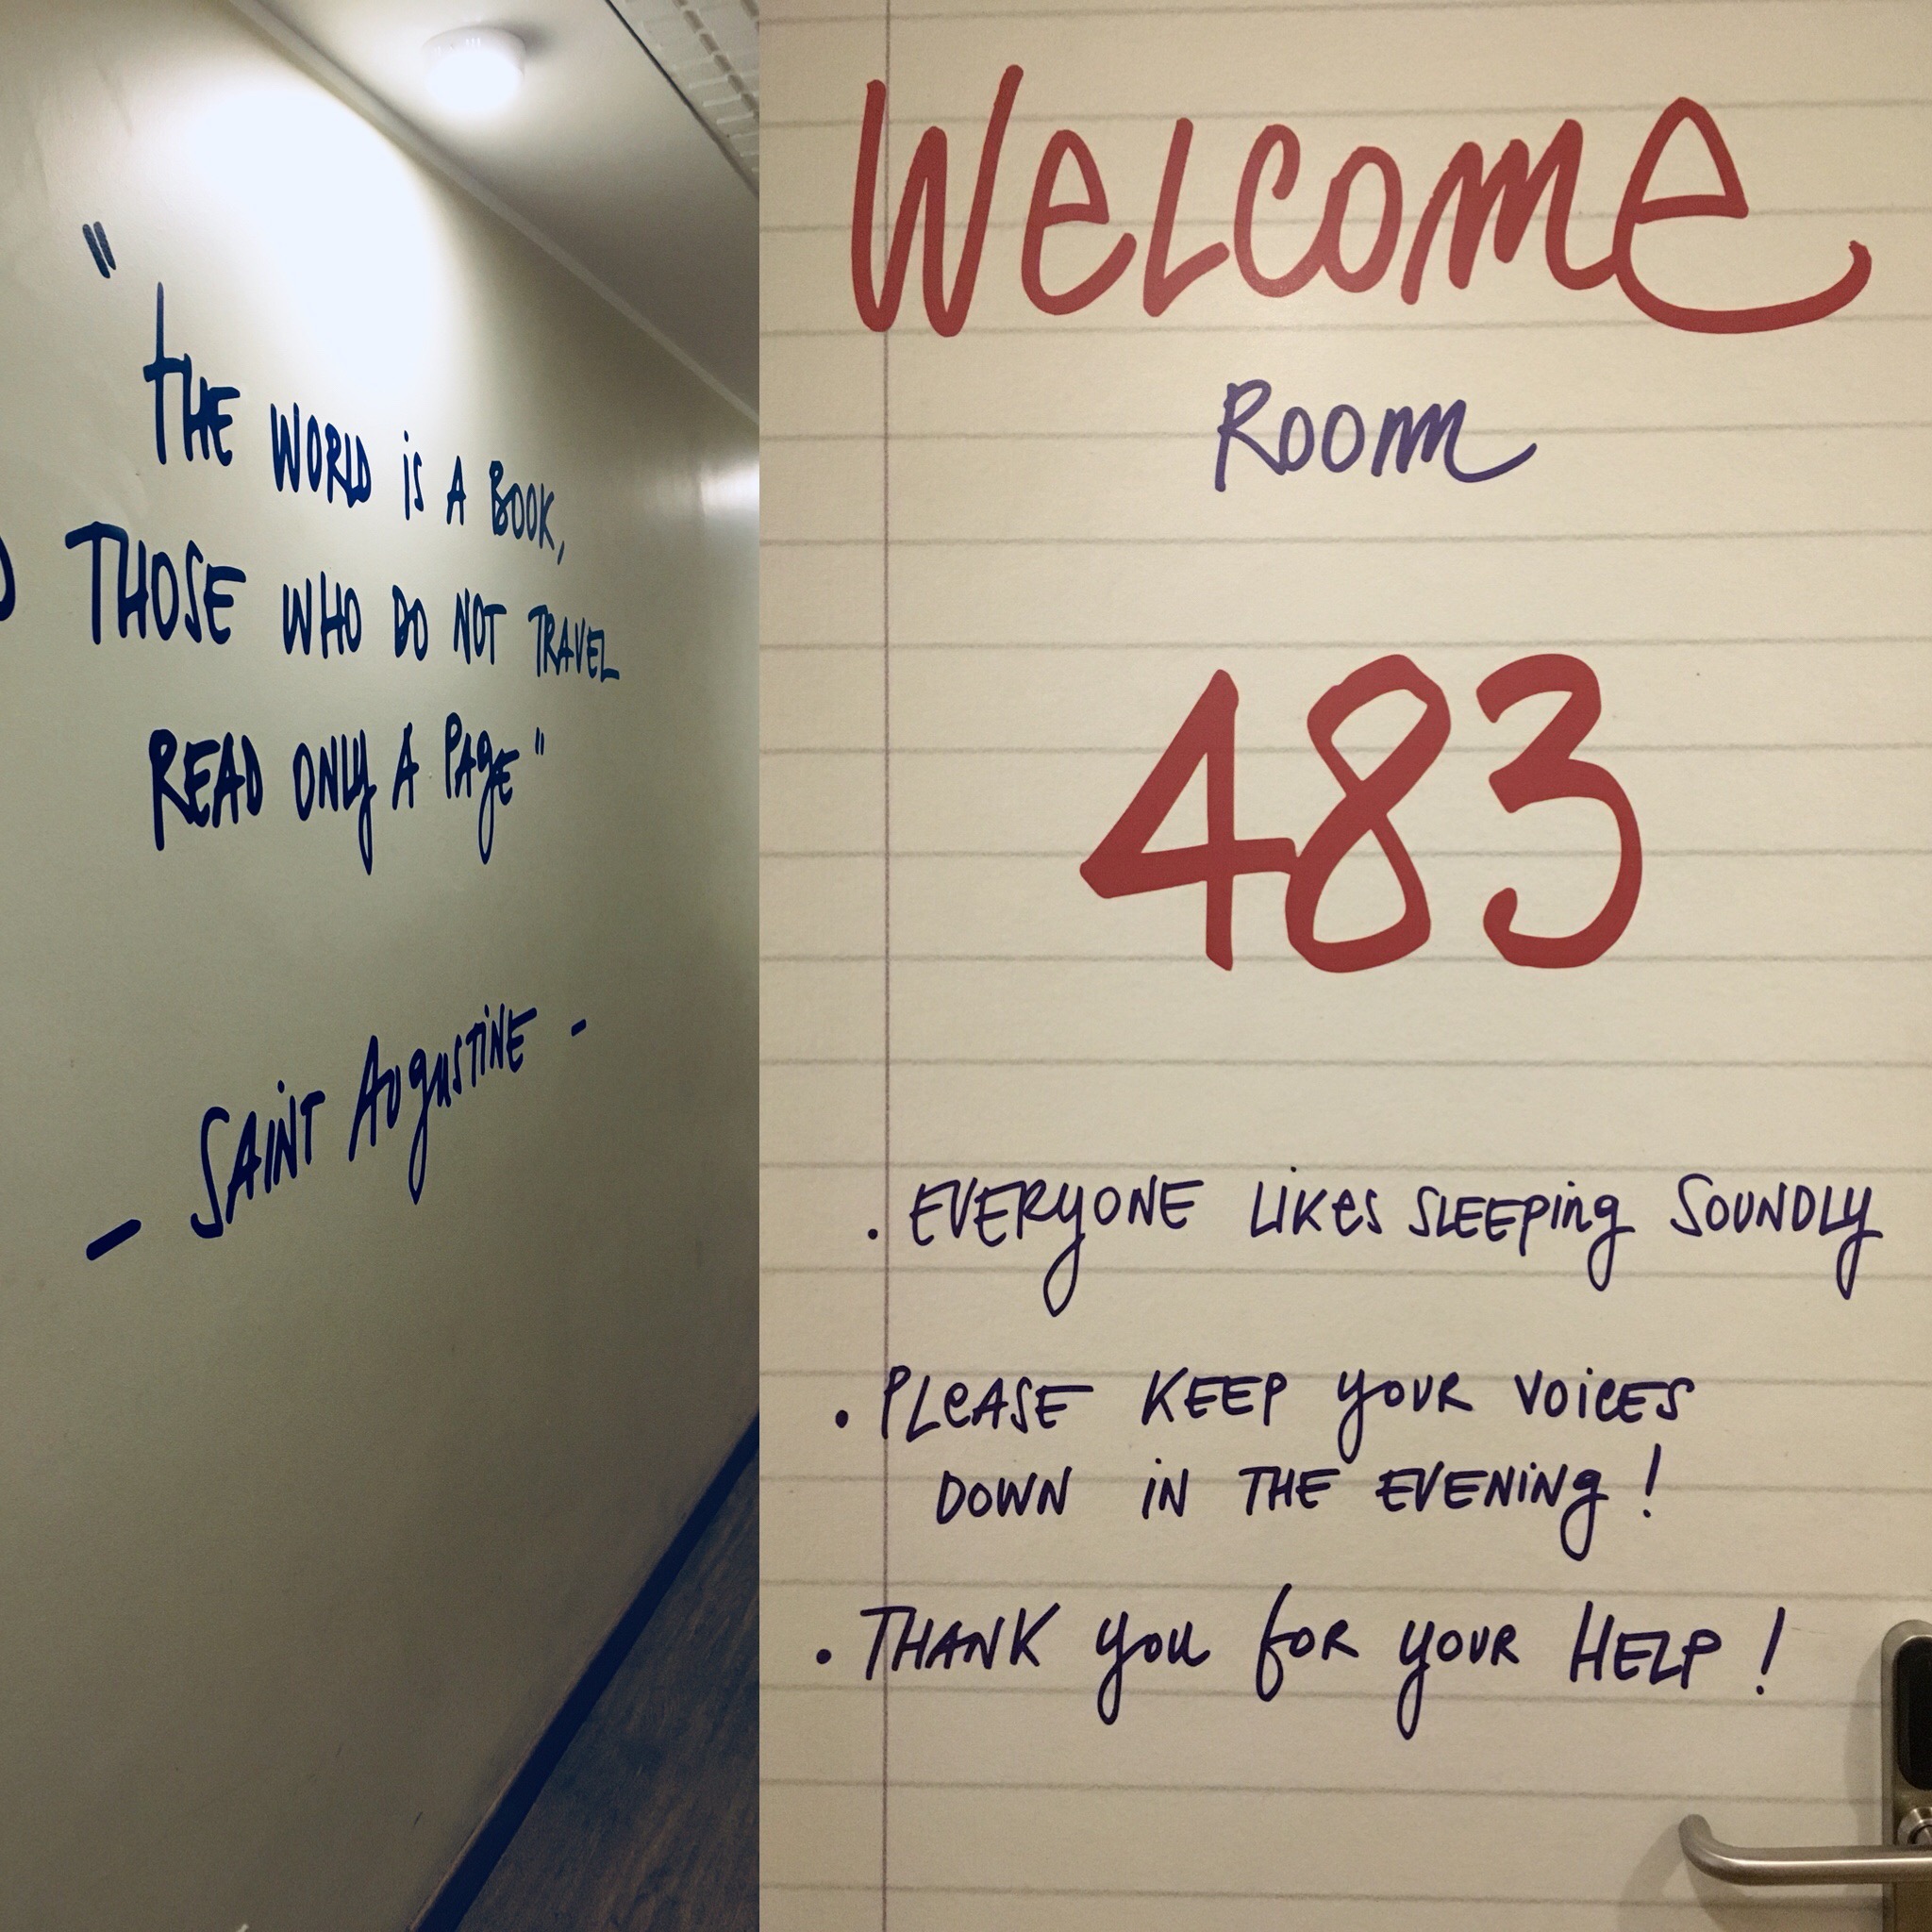 "
THE WORLD iS A BOOK,
THOSE WHO DO NOT TRAVEL
READ ONLY A PAgE"
- SAiNT AugusTiNE -
WeLcome
Room
483
. EVERyONE LiKes SLEEPing SOUNDLy
. PLeASE KEEP yOUR VOiCES
DOWN iN THE EVENiNg !
. THANK you foR yOUR HELP !